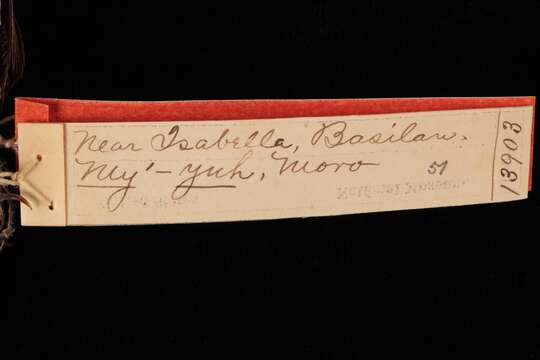 Near Isabella, Basilan.
My'-yuh, Moro
51
13903